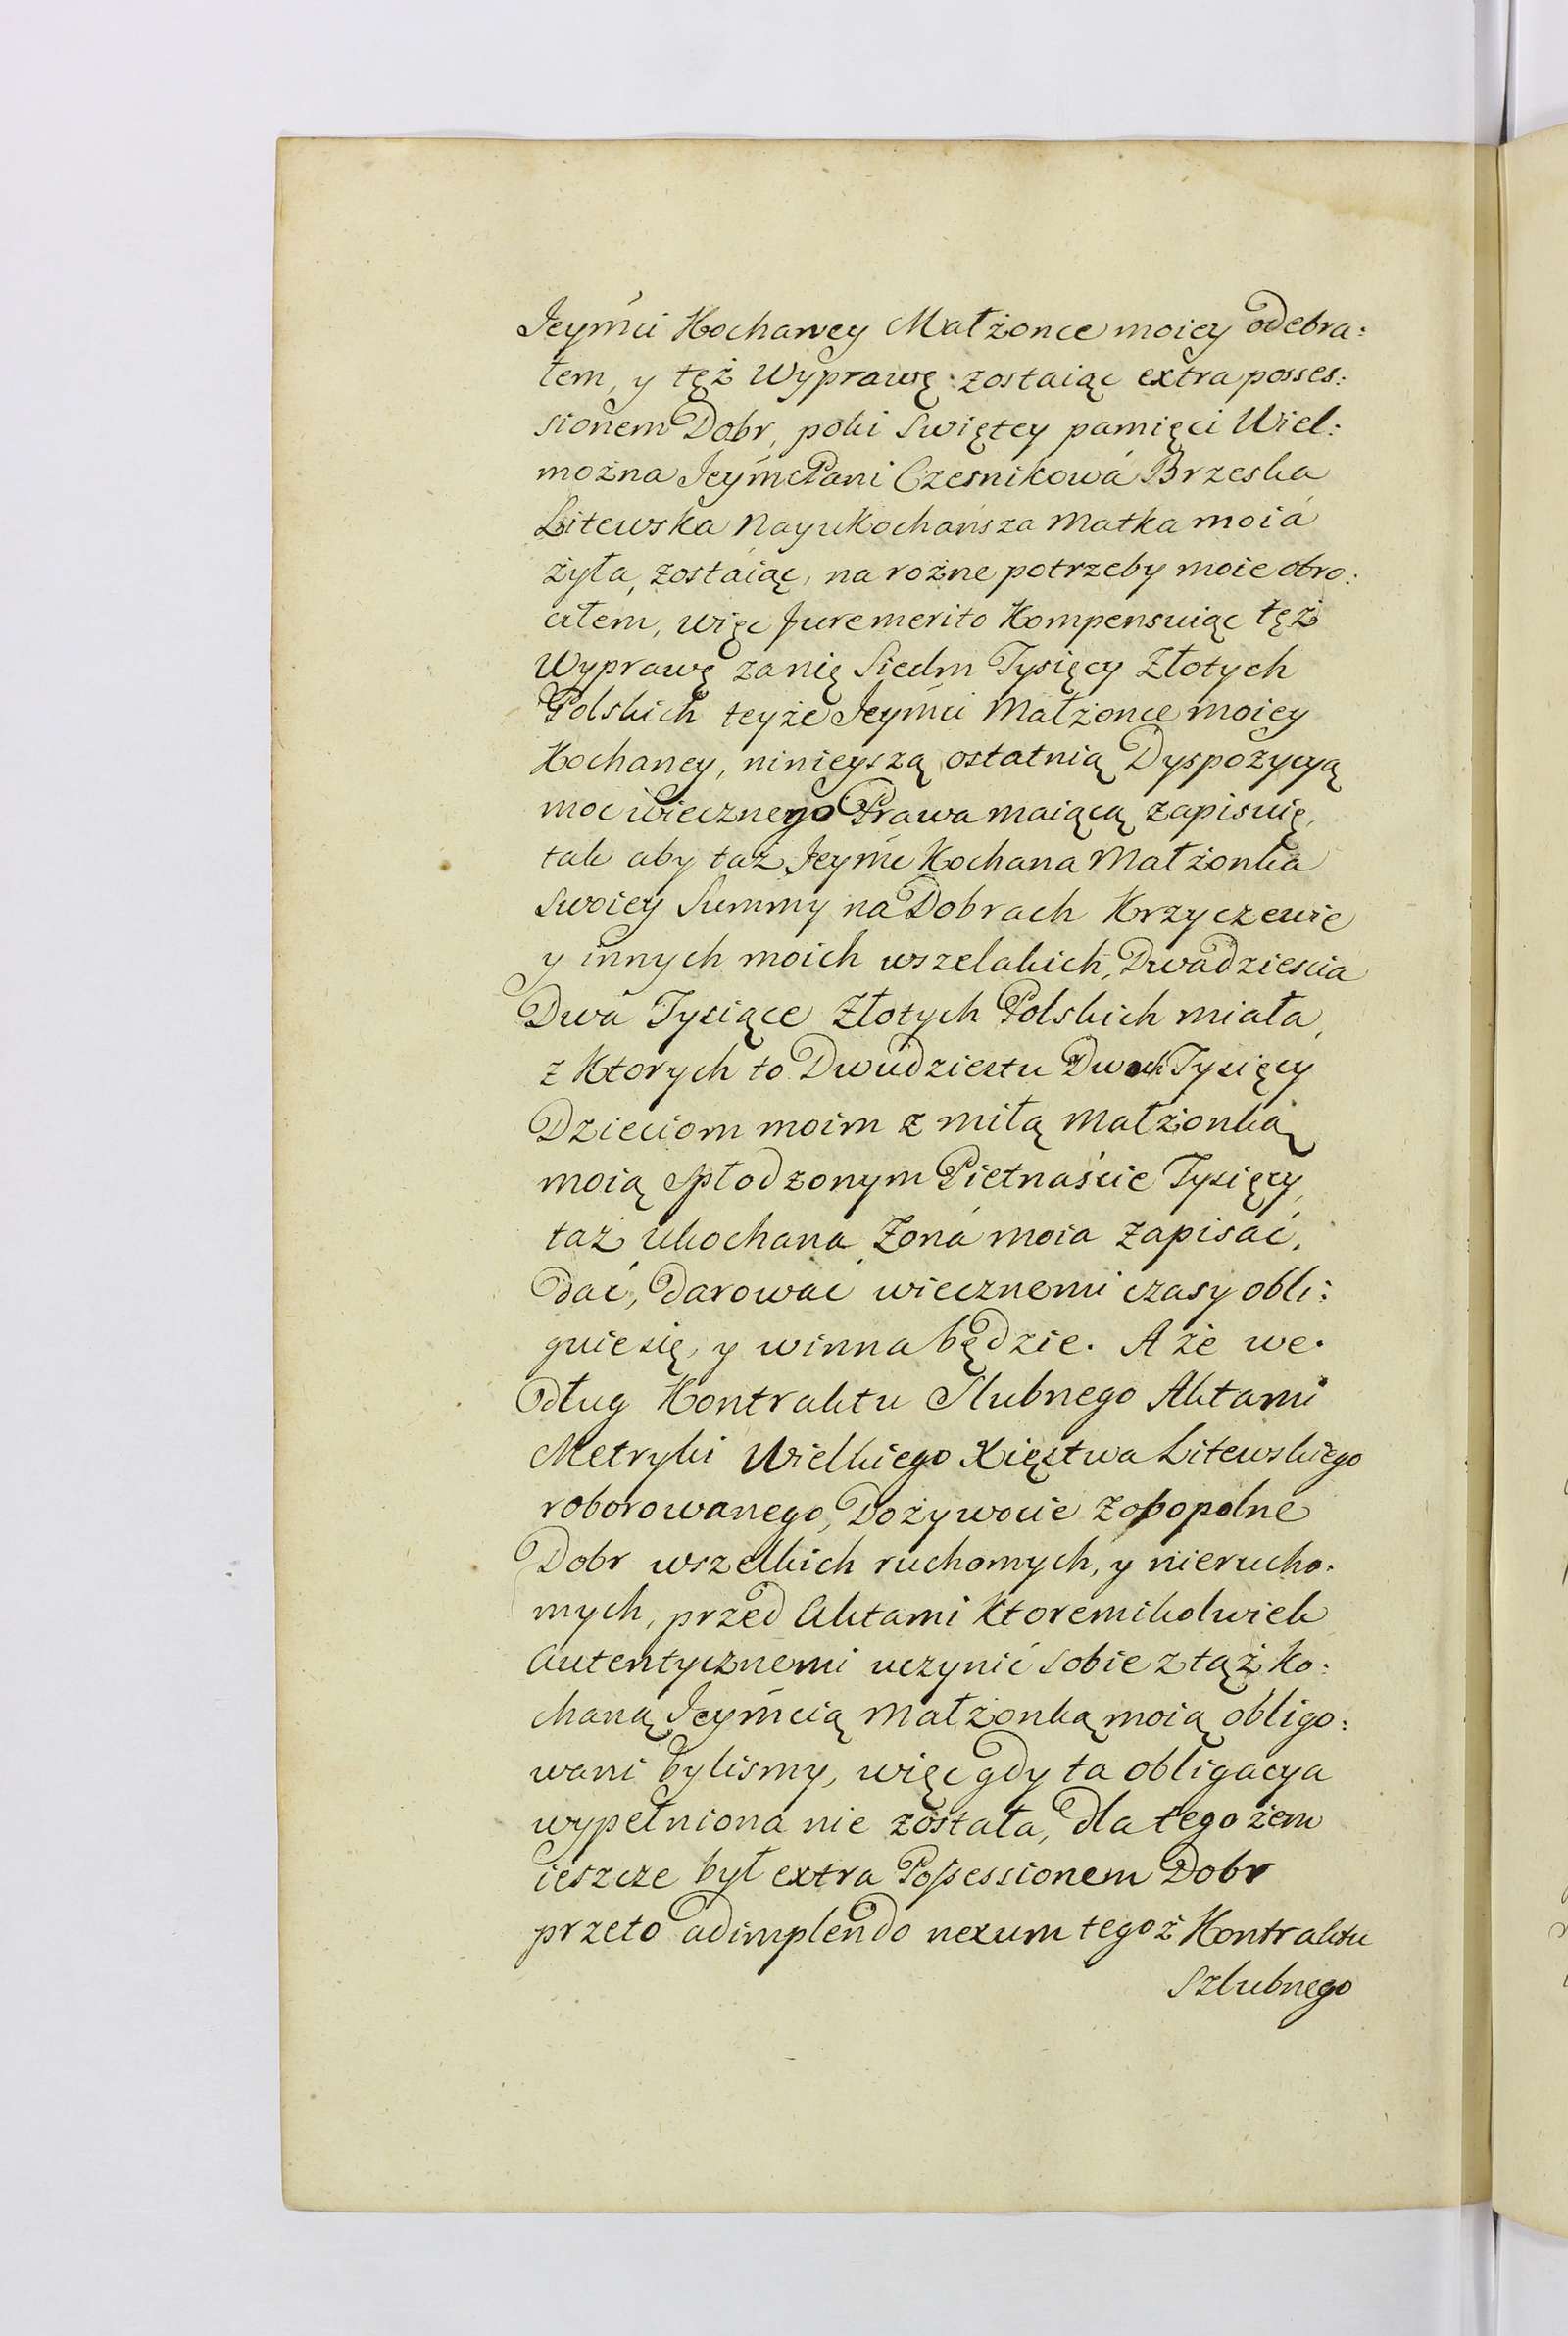 Jeymći Kochaney Małżonce moiey odebra:
łem, y tęż Wyprawę zostaiąc extra posses:
sionem Dobr, poki Swiętey pamięci Wiel:
można JeymćPani Czesnikowá Brzeska
Litewska Nayukochańsza Matka moiá
żyła, zostáiąc, na rożne potrzeby moie obro:
ciłem, więc Jure merito Kompensuiąc tęż
Wyprawę za nię Siedm Tysięcy Złotych
Polskich teyże Jeymći Małżonce moiey
Kochaney, ninieyszą ostatnią Dyspozycyą
moc wiecznego Prawa maiącą zapisuię,
tak aby taż Jeymć Kochana Małżonka
swoiey Summy na Dobrach Krzyczewie
y innych moich wszelakich, Dwadziescia
Dwa Tysiące Złotych Polskich miała,
z Ktorych to Dwudziestu Dwoch Tysięcy
Dzieciom moim z miłą Małżonką
moią spłodzonym Pietnaście Tysięcy,
taż Ukochana Żoná moia zapisać,
dać, darować wiecznemi czasy obli:
guie się, y winna będzie. A że we.
dług Kontraktu Slubnego Aktami
Metryki Wielkiego Xięstwa Litewskiego
roborowanego, Dożywocie zobopolne
Dobr wszelkich ruchomych, y nierucho.
mych, przed Aktami Ktoremikolwiek
Autentycznemi uczynić sobie z tąż Ko:
chaną Jeymcią Małżonką moią obligo:
wani bylismy, więc gdy ta obligacya
wypełniona nie została, dla tego żem
ieszcze był extra Possessionem Dobr
przeto adimplendo nexum tegoż Kontraktu
Szlubnego